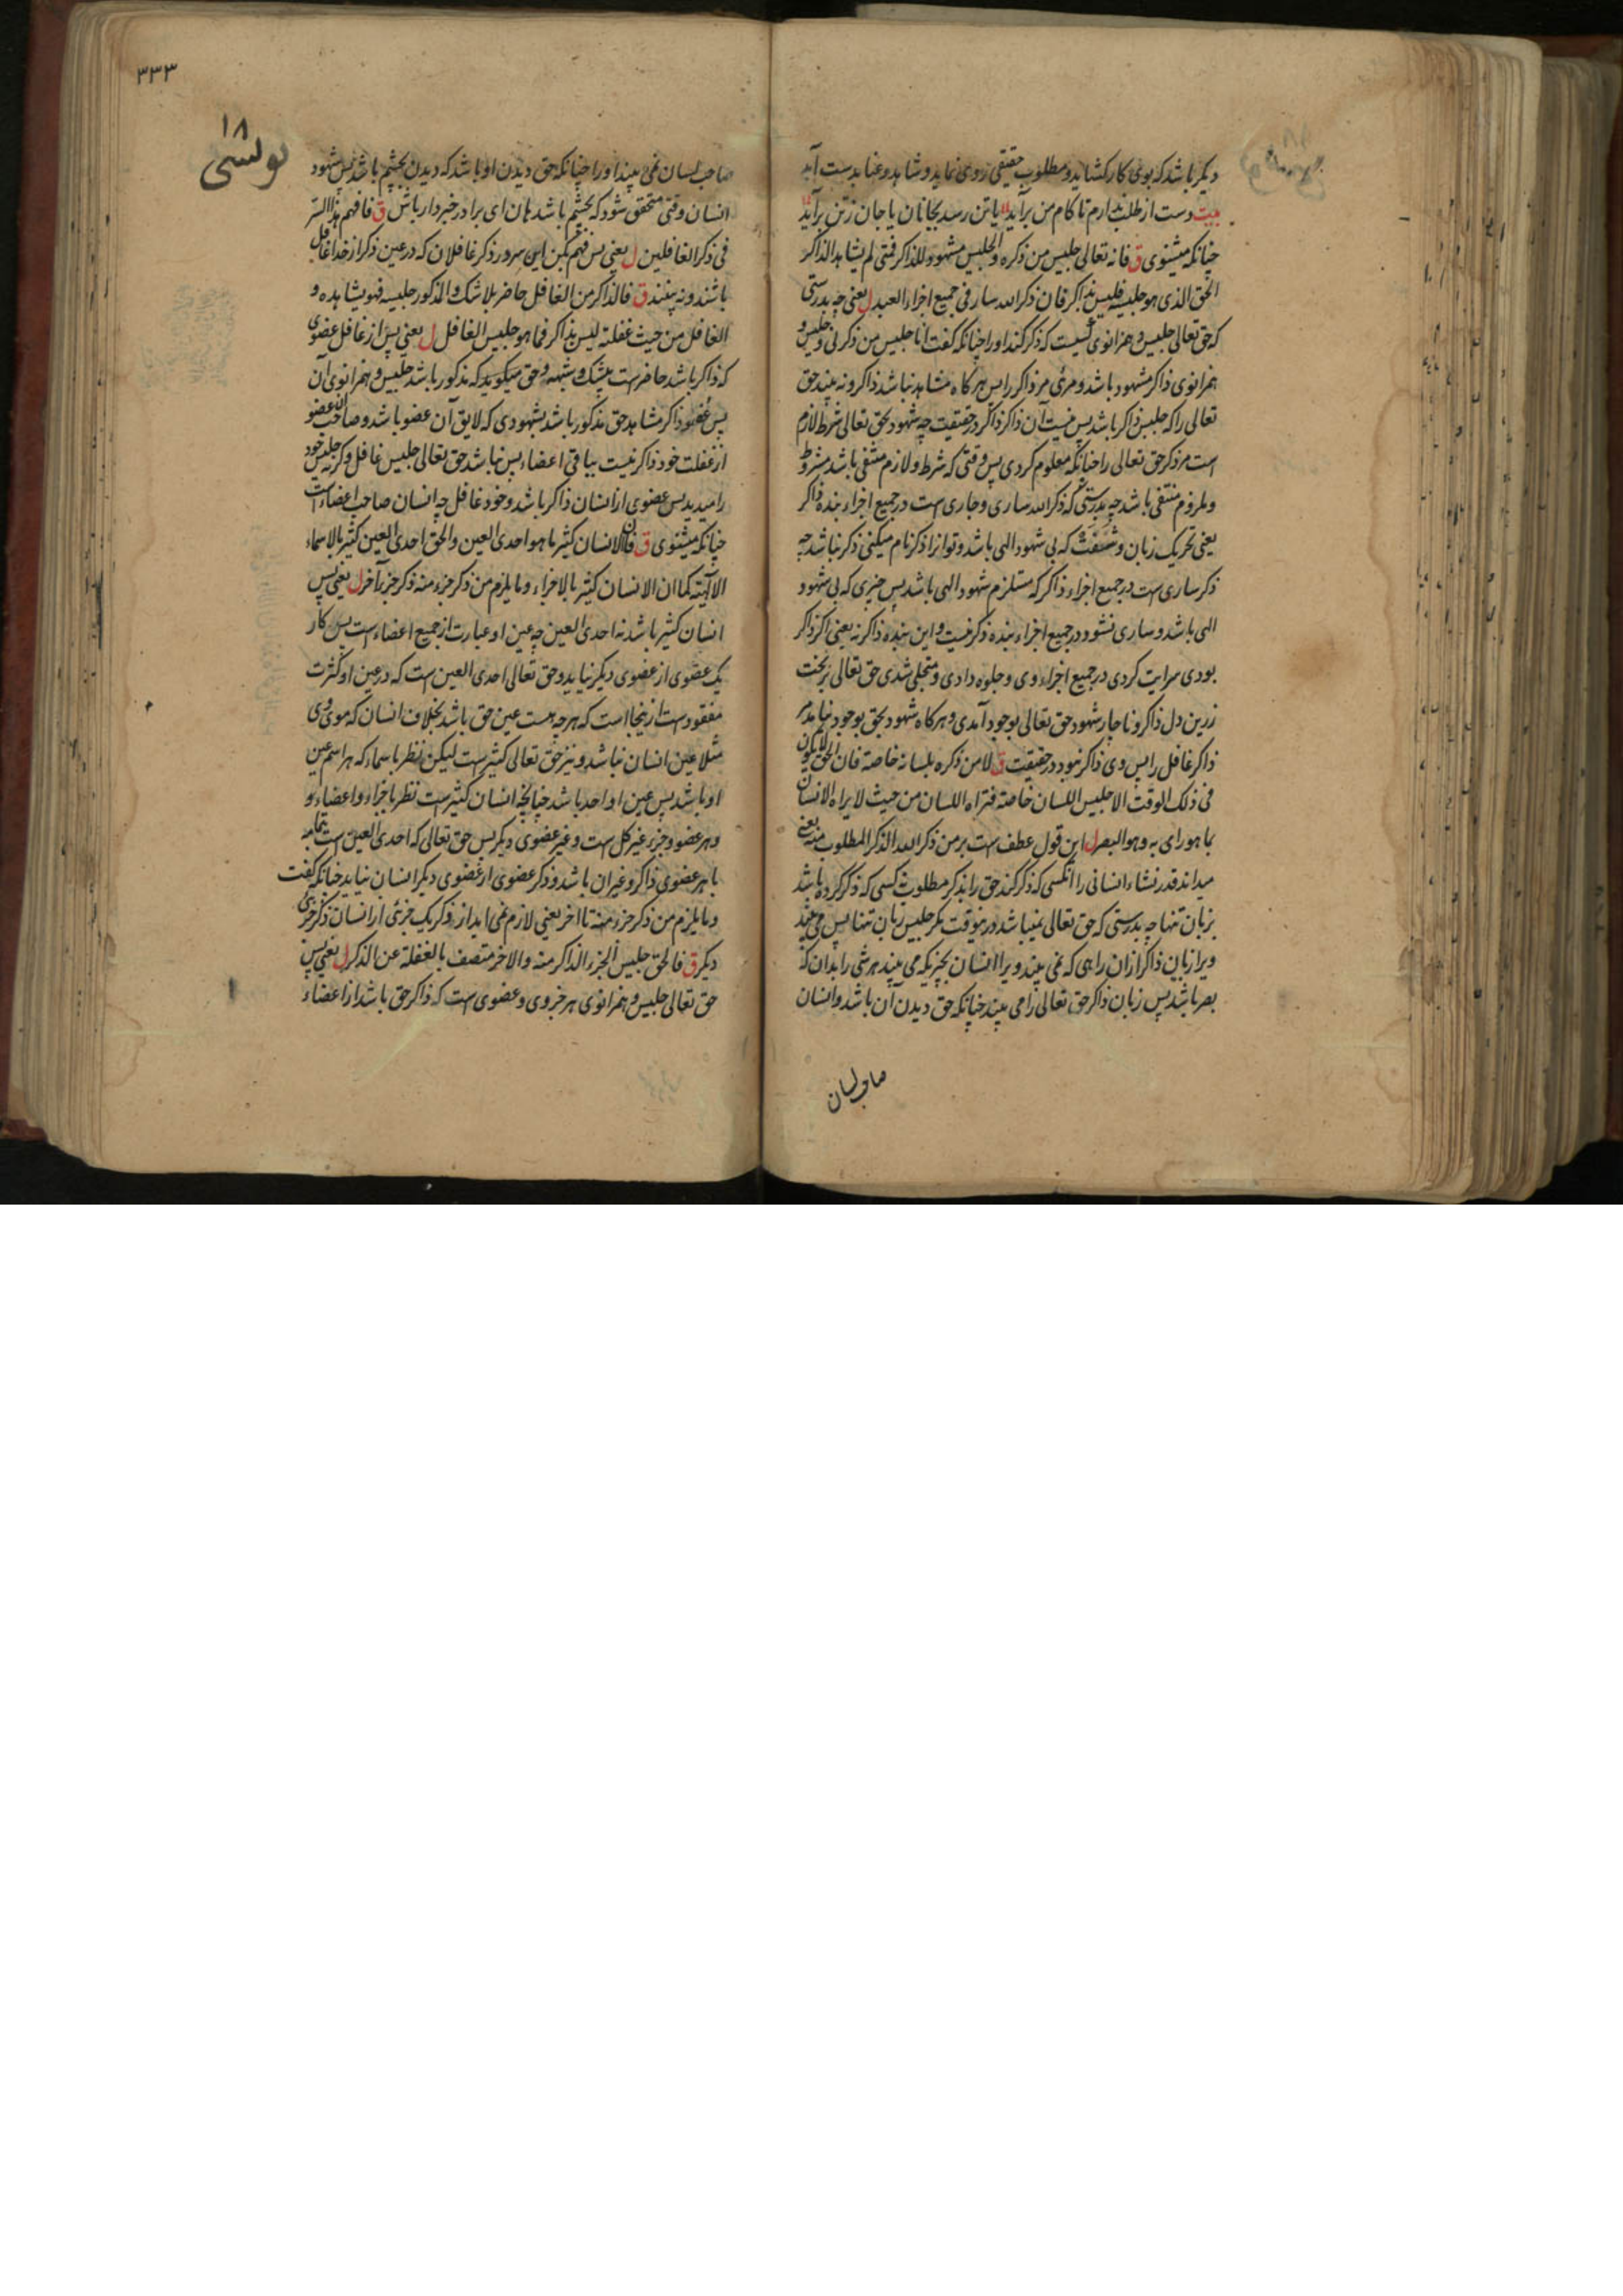 دیکر باشد که بوی کار کشاید و مطلوب حقیقی روی نماید و شاهد و غنا بدست آید
بیت دست از طلب ندارم تا کام من برآید یا تن رسد بجانان یا جان زتن برآید
چنانکه میشنوی ق فانه تعالی جلیس من ذکره والجلیس مشهود للذاکر فمتی لم یشاهد الذاکر
الحق الذی هو جلیسه فلیس بذاکر فان ذکر الله سار فی جمیع اجزاء العبد ل یعنی چه بدرستی
که حق تعالی جلیس و همزانوی کسیست که ذکر کند او را چنانکه کفت انا جلیس من ذکرنی و جلیس و
همزانوی ذاکر مشهود باشد و مرئی مر ذاکر را پس هر کاه مشاهد نباشد ذاکر و نه بیند حق
تعالی را که جلیس ذاکر باشد پس نیست آن ذاکر ذاکر در حقیقت چه شهود حق تعالی شرط لازم
است مر ذکر حق تعالی را چنانکه معلوم کردی پس وقتی که شرط و لازم منتفی باشد مشروط
و ملزوم منتفی باشد چه بدرستی که ذکر الله ساری و جاری است در جمیع اجزاء بنده ذاکر
یعنی تحریک زبان و شفت که بی شهود الهی باشد و تو انرا ذکر نام میکنی ذکر نباشد چه
ذکر ساری است در جمیع اجزاء ذاکر که مستلزم شهود الهی باشد پس چیزی که بی شهود
الهی باشد و ساری نشود در جمیع اجزاء بنده ذکر نیست و این بنده ذاکر نه یعنی اکر ذاکر
بودی سرایت کردی در جمیع اجزاء وی و جلوه دادی و متجلی شدی حق تعالی بر تخت
زرین دل ذاکر و ناچار شهود حق تعالی بوجود آمدی و هر کاه شهود بحق بوجود نیامد مر
ذاکر غافل را پس وی ذاکر نبود در حقیقت ق لا من ذکره بلسانه خاصة فان الحق لا یکون
فی ذلک الوقت الا جلیس اللسان خاصة فتراه اللسان من حیث لا یراه الانسان
بما هو رای به وهو البصر ل این قول عطف است بر من ذکر الله الذکر المطلوب منه یعنی
میداند قدر نشاء انسانی را انکسی که ذکر کند حق را بذکر مطلوب نه کسی که ذکر کرده باشد
بزبان تنها چه بدرستی که حق تعالی نمیباشد درینوقت مکر جلیس زبان تنها پس می بیند
ویرا زبان ذاکر ازان راهی که نمی بیند ویرا انسان بچیزیکه می بیند هر شی را بدان که
بصر باشد پس زبان ذاکر حق تعالی را می بیند چنانکه حق دیدن آن باشد و انسان
صاحب لسان
٣٣٣
١٨
یونسی
صاحب لسان نمی بیند او را چنانکه حق دیدن او باشد که دیدن بچشم باشد پس شهود
انسان وقتی متحقق شود که بچشم باشد هان ای برادر خبردار باش ق فافهم هذا السر
فی ذکر الغافلین ل یعنی پس فهم بکن این سر در ذکر غافلان که در عین ذکر از خدا غافل
باشند و نه بینند ق فالذاکر من الغافل حاضر بلا شک والمذکور جلیسه فهو یشاهده و
الغافل من حیث غفلته لیس بذاکر فما هو جلیس الغافل ل یعنی پس از غافل عضوی
که ذاکر باشد حاضر است بیشک و شبهه و حق میکوید که مذکور باشد جلیس و همزانوی آن
پس عضو ذاکر مشاهد حق مذکور باشد بشهودی که لایق آن عضو باشد و صاحب آن عضو
از غفلت خود ذاکر نیست بباقی اعضاء پس نباشد حق تعالی جلیس غافل و کرنه جلیس خود
را میدید پس عضوی از انسان ذاکر باشد و خود غافل چه انسان صاحب اعضاء است
چنانکه میشنوی ق فان الانسان کثیر ما هو احدی العین والحق احدی العین کثیر بالاسماء
الالهیة کما ان الانسان کثیر بالاجزاء وما یلزم من ذکر جزء منه ذکر جزء آخر ل یعنی پس
انسان کثیر باشد نه احدی العین چه عین او عبارت از جمیع اعضاء است پس کار
یک عضوی از عضوی دیکر نیاید و حق تعالی احدی العین است که در عین او کثرت
مفقود است از ینجا است که هر چه هست عین حق باشد بخلاف انسان که موی وی
مثلا عین انسان نباشد و نیز حق تعالی کثیر است لیکن نظر باسماء که هر اسم عین
او باشد پس عین او واحد باشد چنانچه انسان کثیر است نظر باجزاء و اعضاء و
و هر عضو و جزء غیر کل است و غیر عضوی دیکر پس حق تعالی که احدی العین است بتمامه
با هر عضوی ذاکر و غیر ان باشد و ذکر عضوی از عضوی دیکر انسان نیاید چنانکه کفت
وما یلزم من ذکر جزء منه تا آخر یعنی لازم نمی اید از ذکر یک جزئی از انسان ذکر جزئی
دیکر ق فالحق جلیس الجزء الذاکر منه والاخر متصف بالغفلة عن الذکر ل یعنی پس
حق تعالی جلیس و همزانوی هر جزوی و عضوی است که ذاکر حق باشد از اعضاء